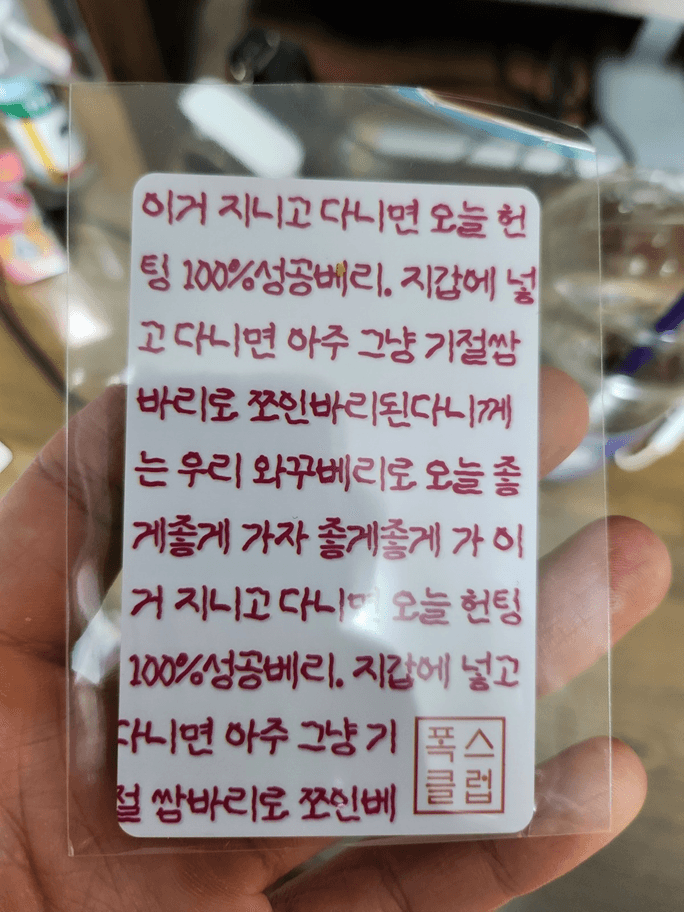 이거 지니고 다니면 오늘 헌
팅 100%성공베리. 지갑에 넣
고 다니면 아주 그냥 기절쌈
바리로 쪼인바리된다니께
는 우리 와꾸베리로 오늘 좋
게좋게 가자 좋게좋게 가 이
거 지니고 다니면 오늘 헌팅
100%성공베리. 지갑에 넣고
다니면 아주 그냥 기
절 쌈바리로 쪼인베
폭스
클럽